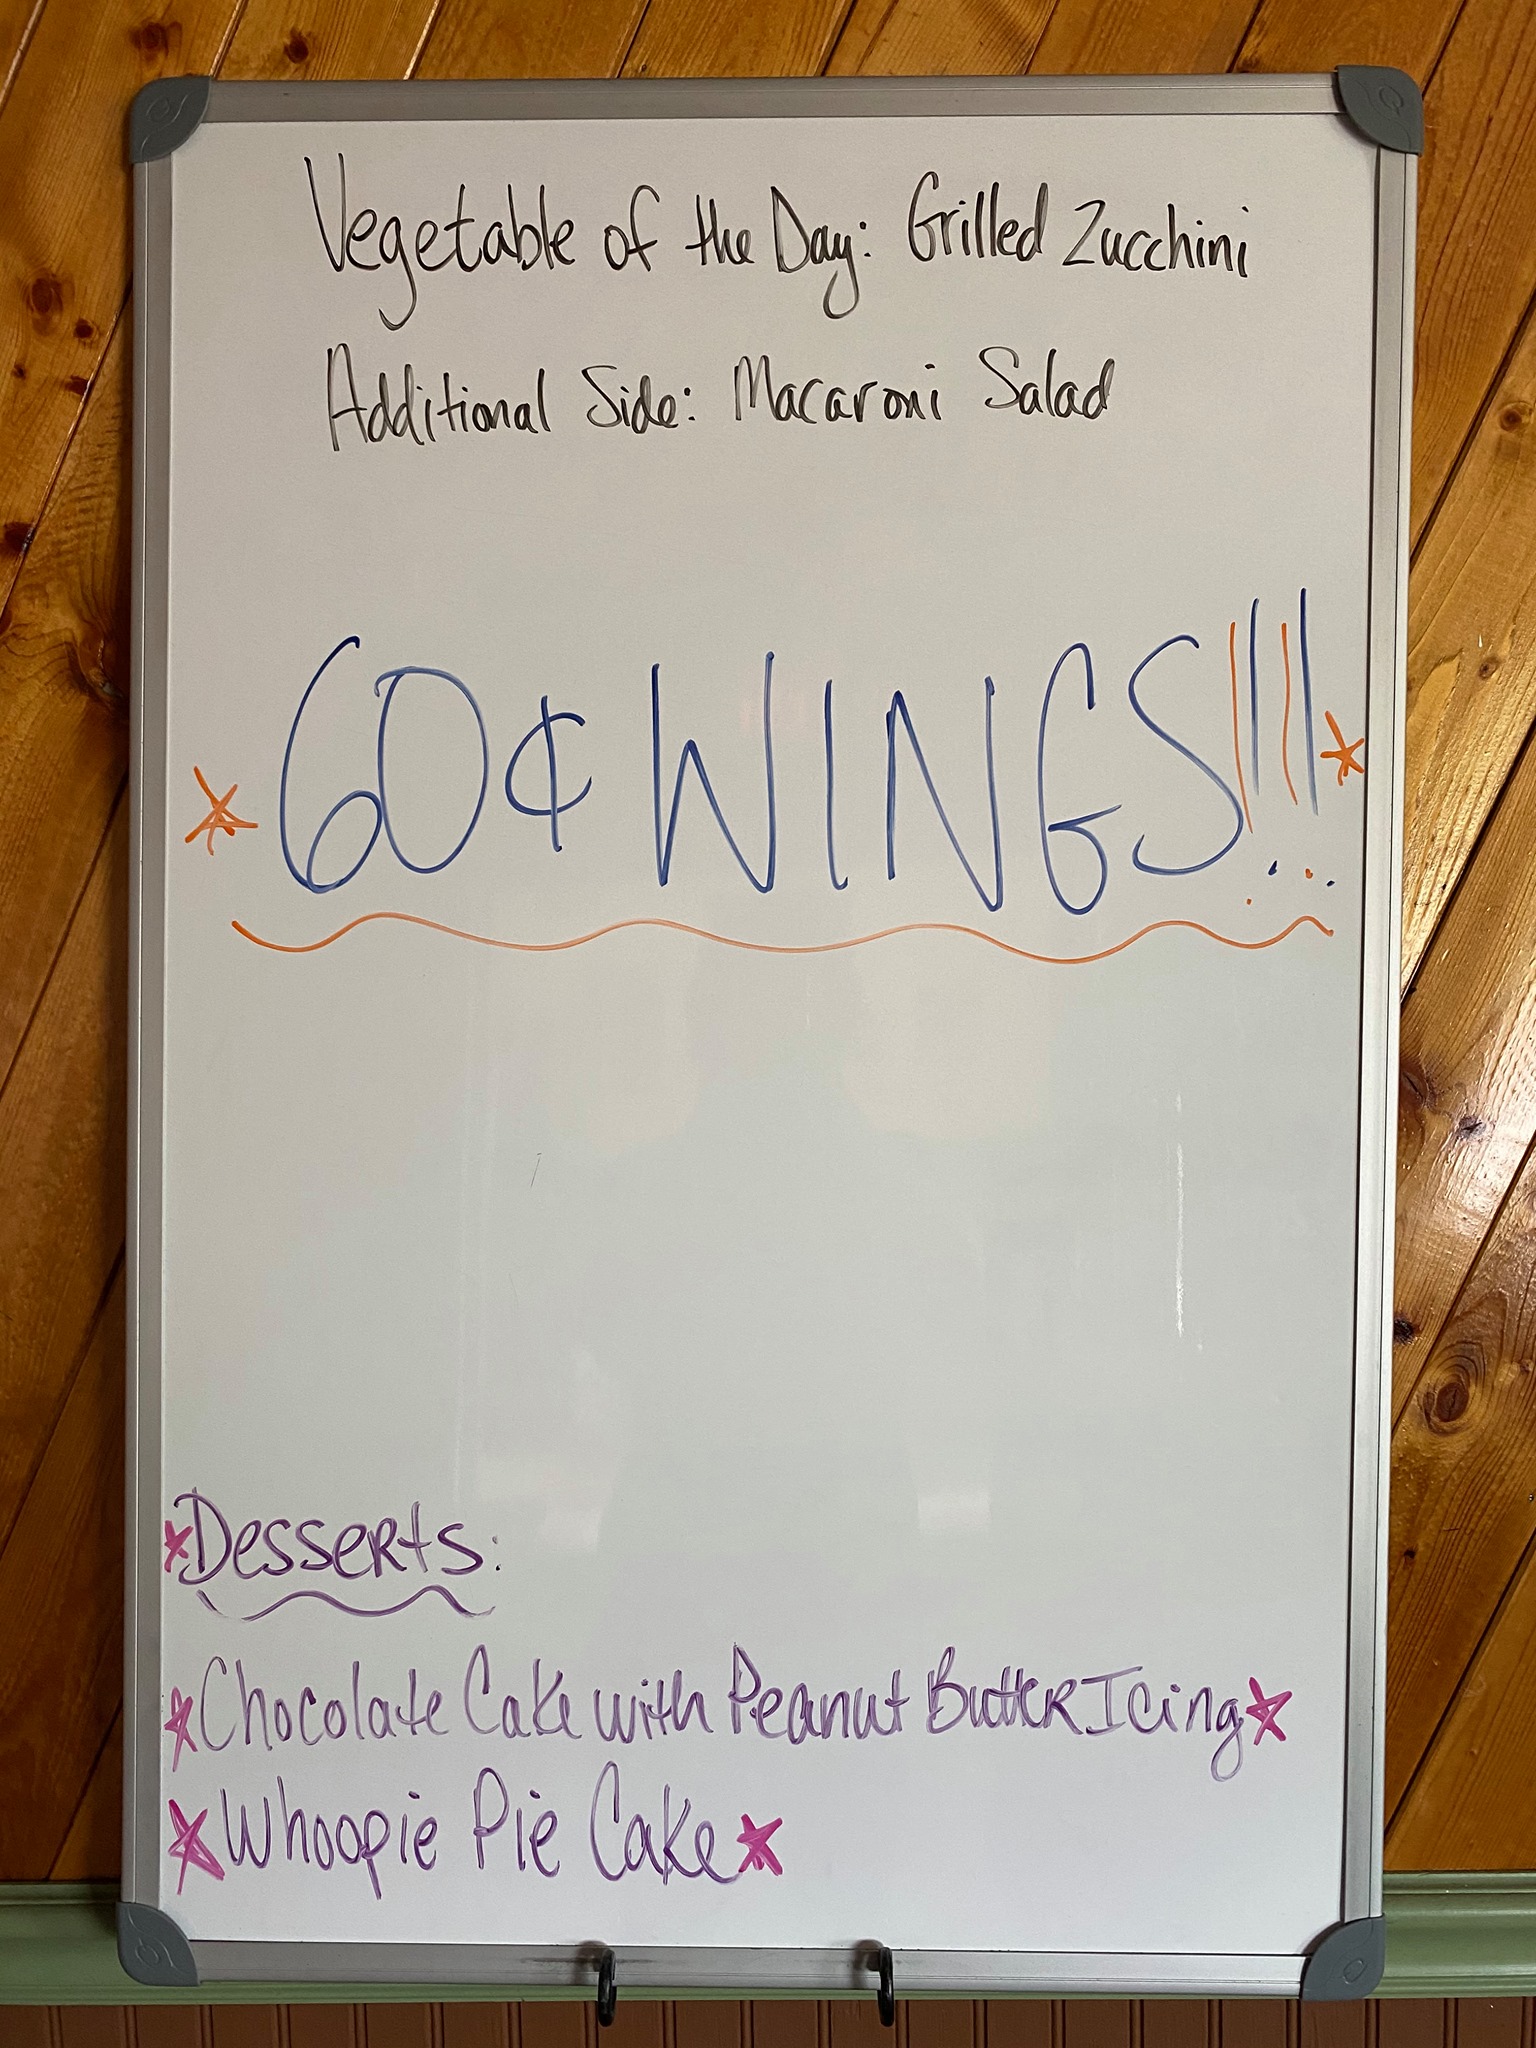 Vegetable of the Day: Grilled Zucchini
Additional Side: Macaroni Salad
60¢ WINGS!!!!
Desserts:
Chocolate Cake with Peanut Butter Icing
Whoopie Pie Cake